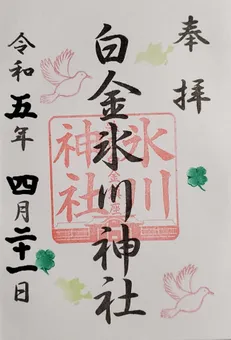 奉拝
白金氷川神社
氷川神社
令和五年四月二十一日